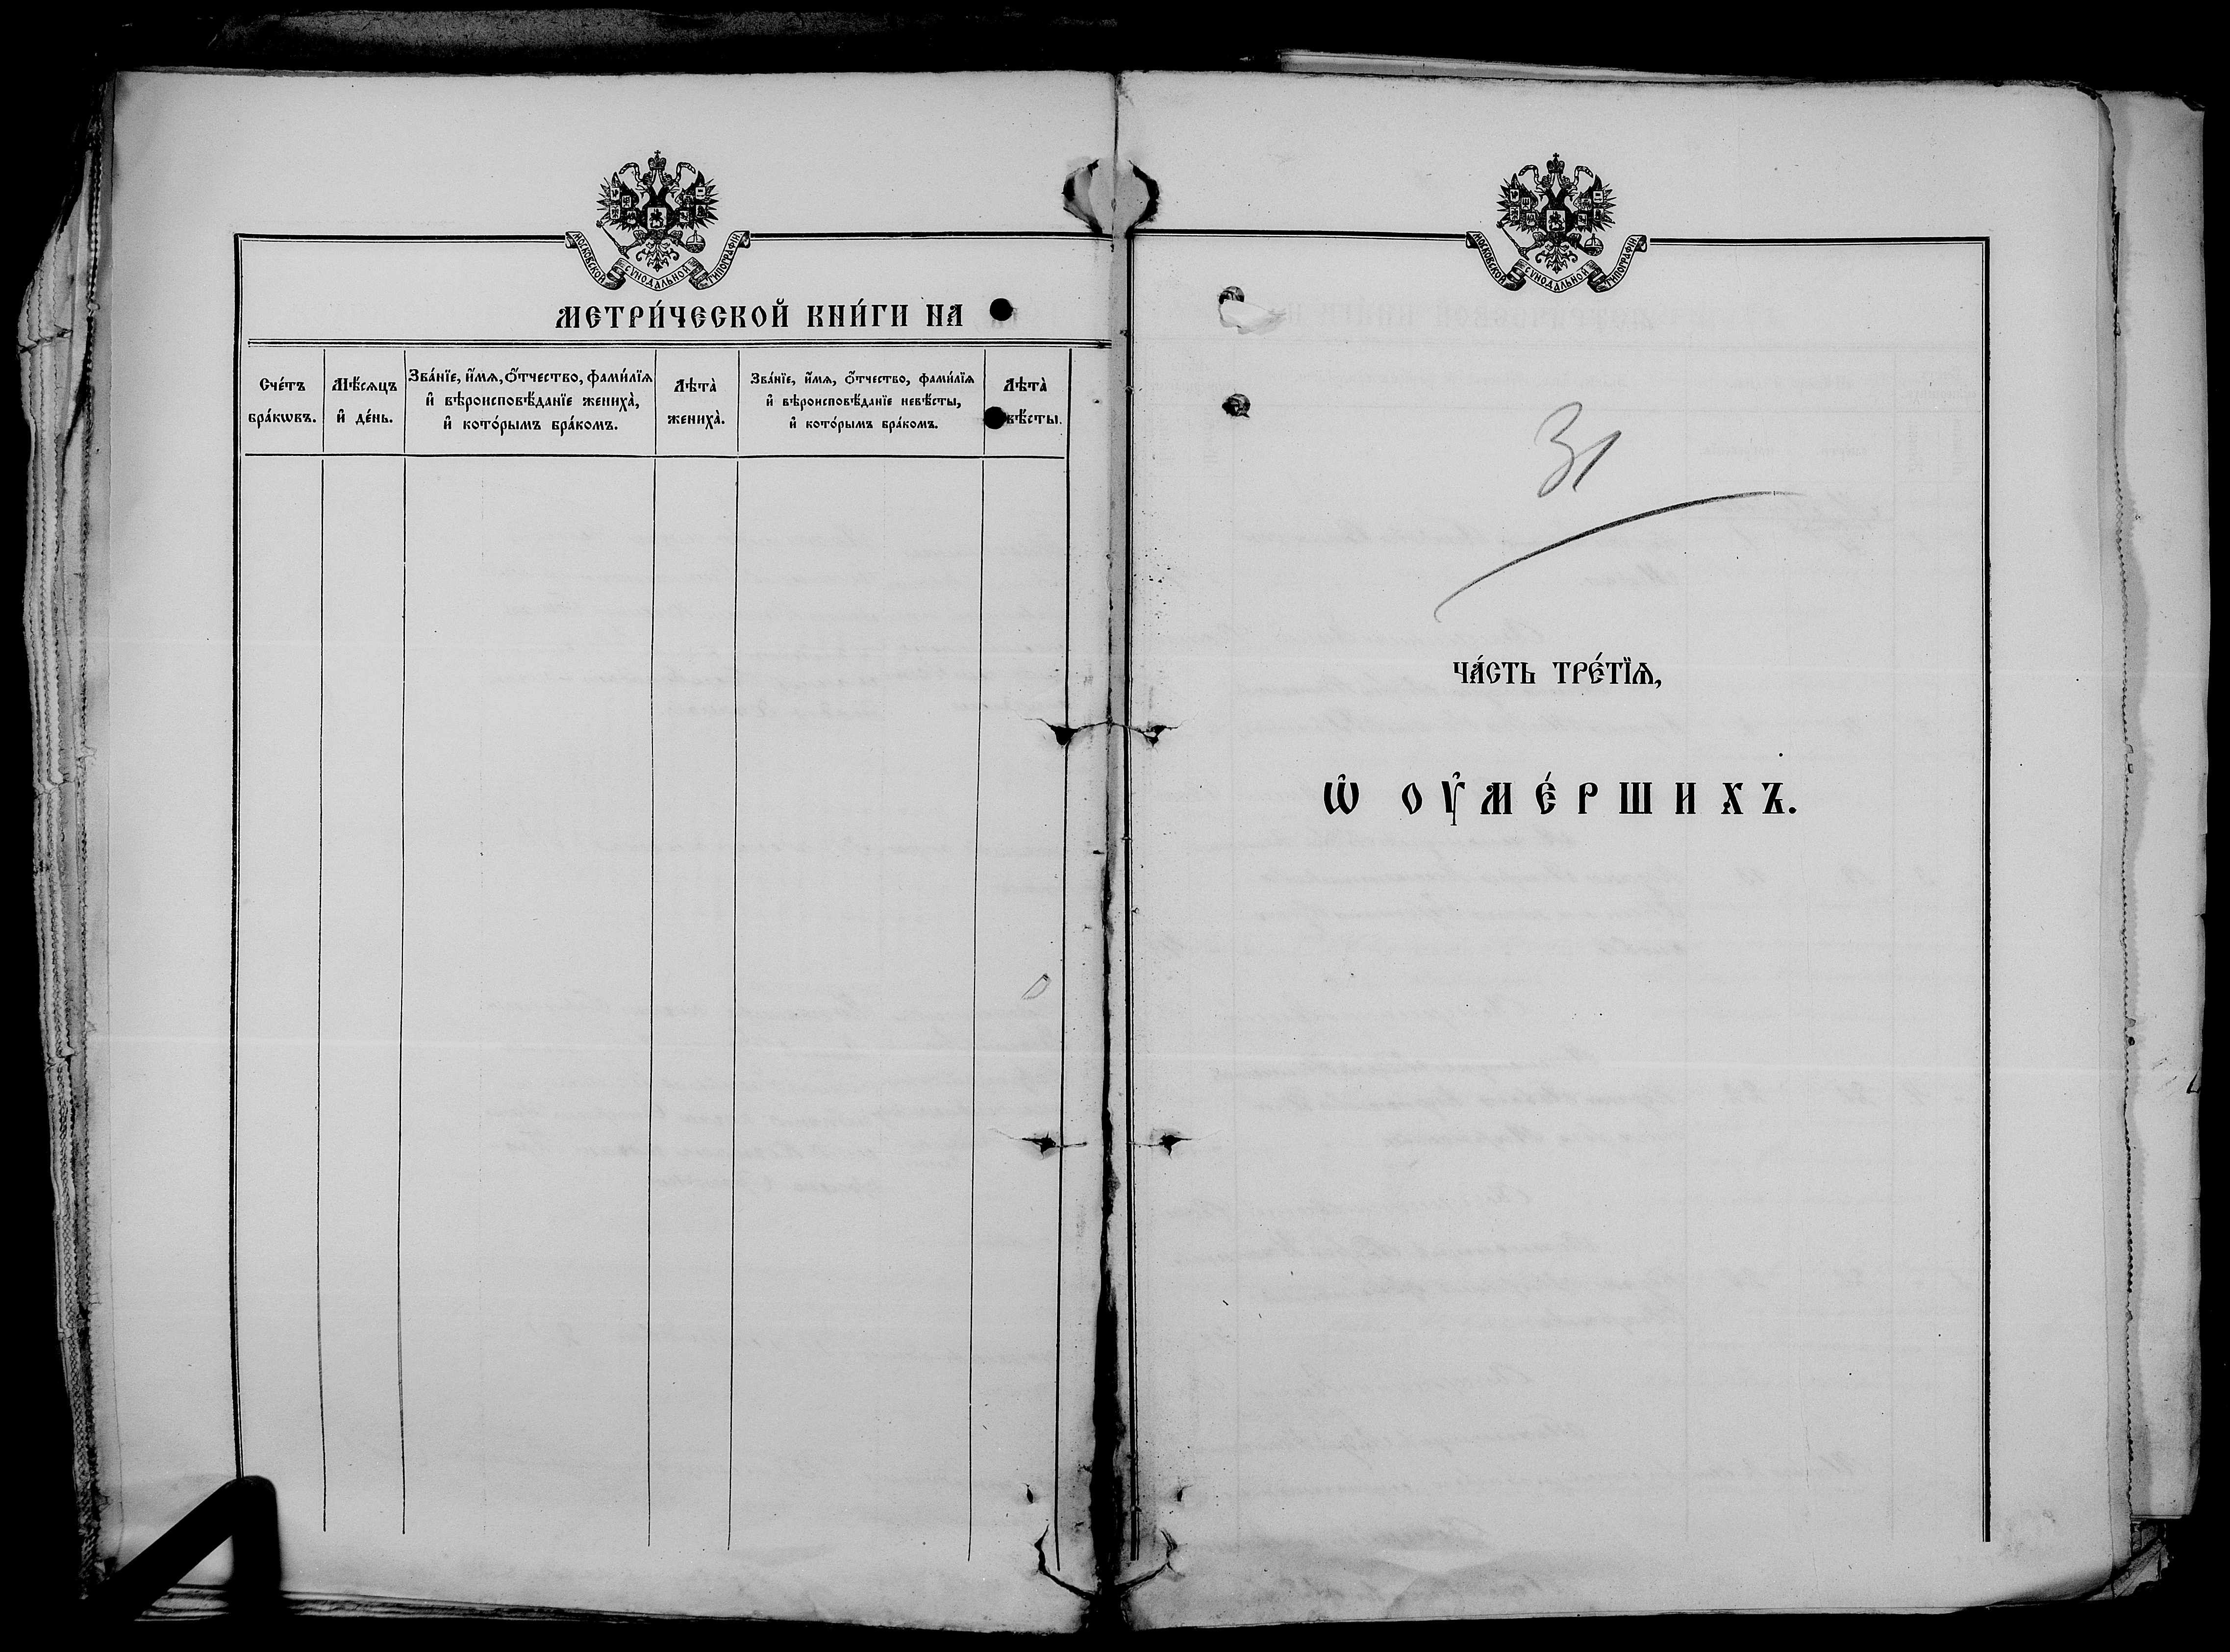 МОСКОВСКОЙ СѴНОДАЛЬНОЙ ТИПОГРАФІИ
МЕТРИ́ЧЕСКОЙ КНИ́ГИ НА
Сче́тъ бра́кѡвъ.
Мѣ́сѧцъ и҆ де́нь.
Зва́нїе, и҆́мѧ, ѻ҆́тчество, фами́лїѧ
и҆ вѣроисповѣ́данїе жениха̀,
и҆ кото́рымъ бра́комъ.
Лѣта̀ жениха̀.
Зва́нїе, и҆́мѧ, ѻ҆́тчество, фами́лїѧ
и҆ вѣроисповѣ́данїе невѣ́сты,
и҆ кото́рымъ бра́комъ.
Лѣта̀
вѣ́сты.
МОСКОВСКОЙ СѴНОДАЛЬНОЙ ТИПОГРАФІИ
31
ЧА́СТЬ ТРЕ́ТЇѦ,
Ѡ҆ ОУ҆МЕ́РШИХЪ.